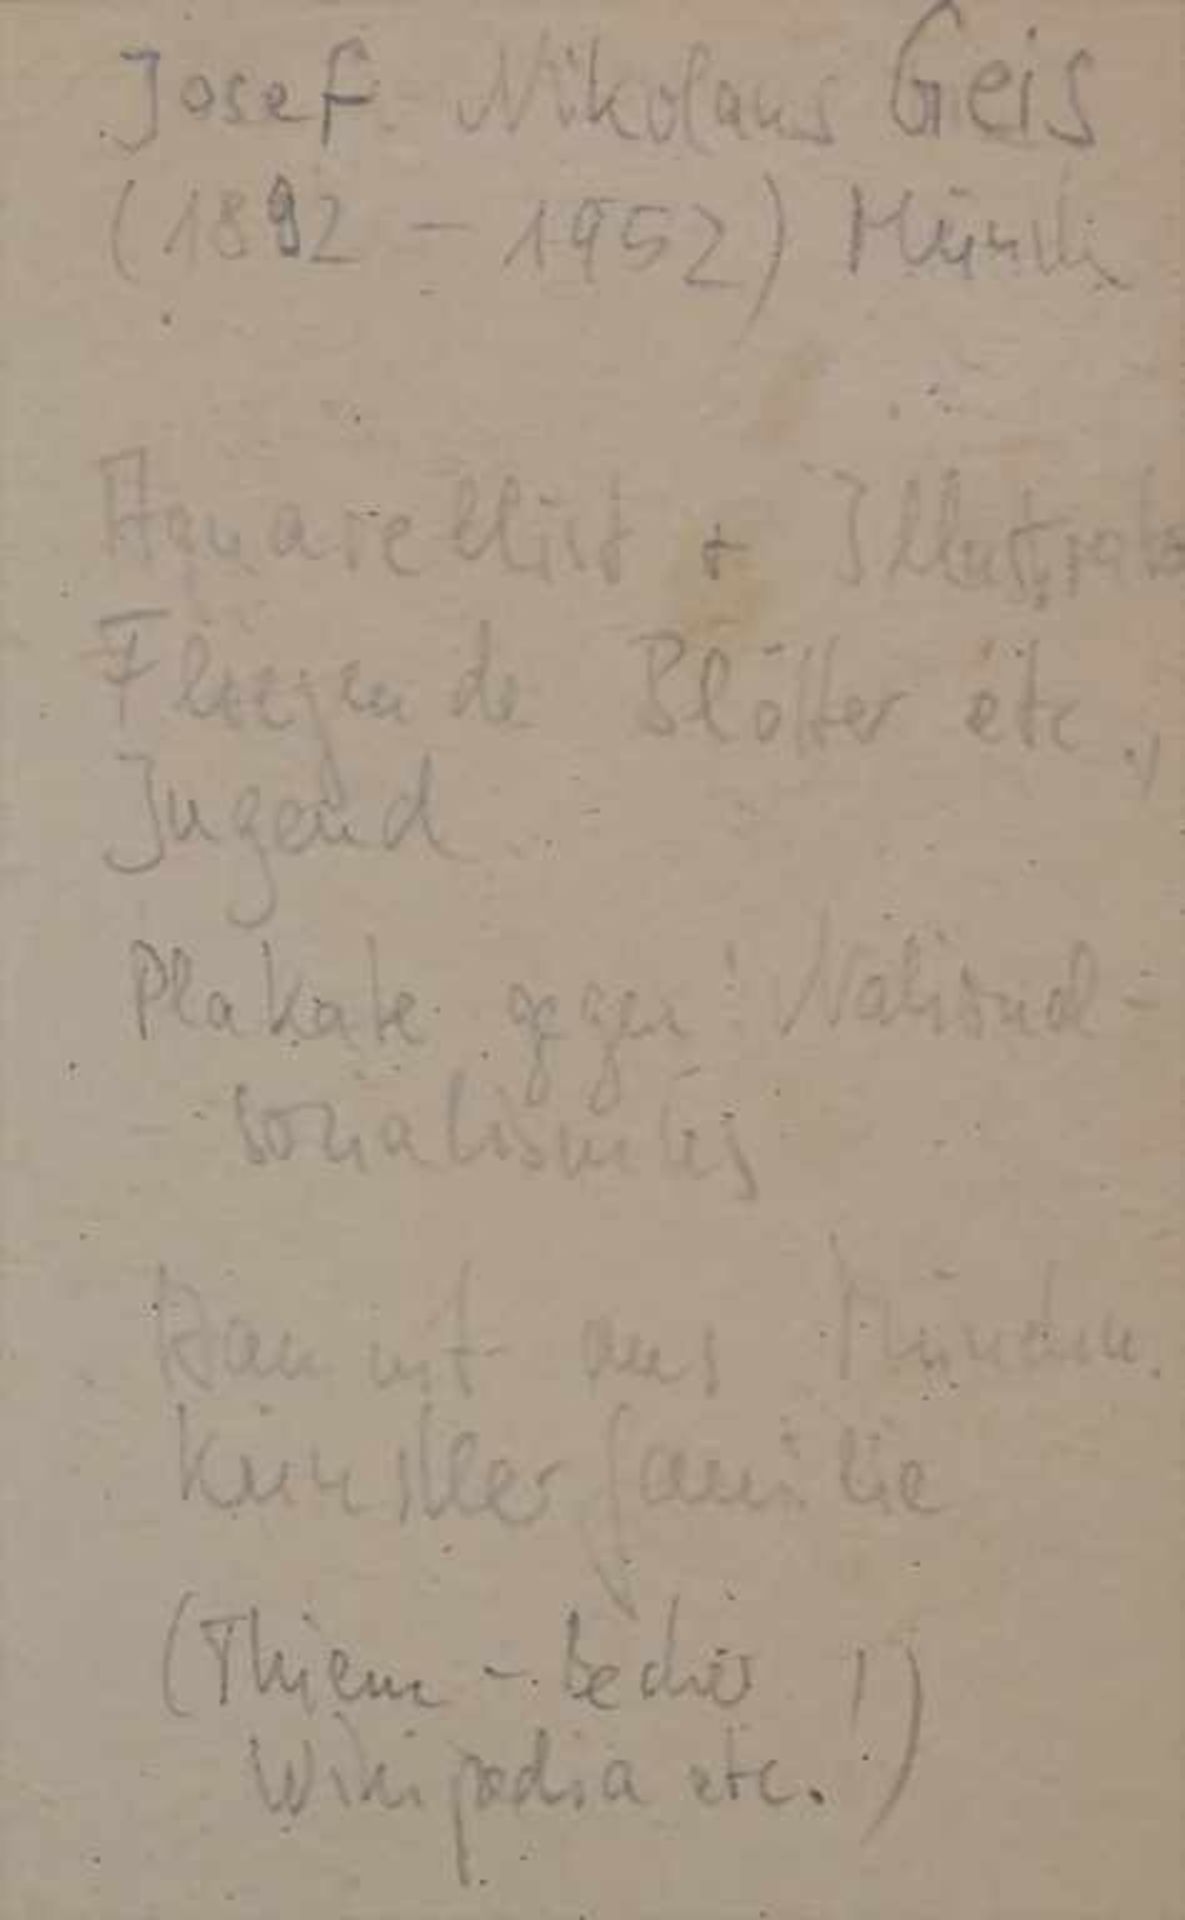 Josef Nikolaus Geis
(1892 – 1952) Münch
Aquarellist + Illustrato
Fliegende Blätter etc.,
Jugend
Plakate gegen National-
sozialismus
aus München.
Künstlerfamilie
(Thieme - Becker !)
Wikipedia etc.